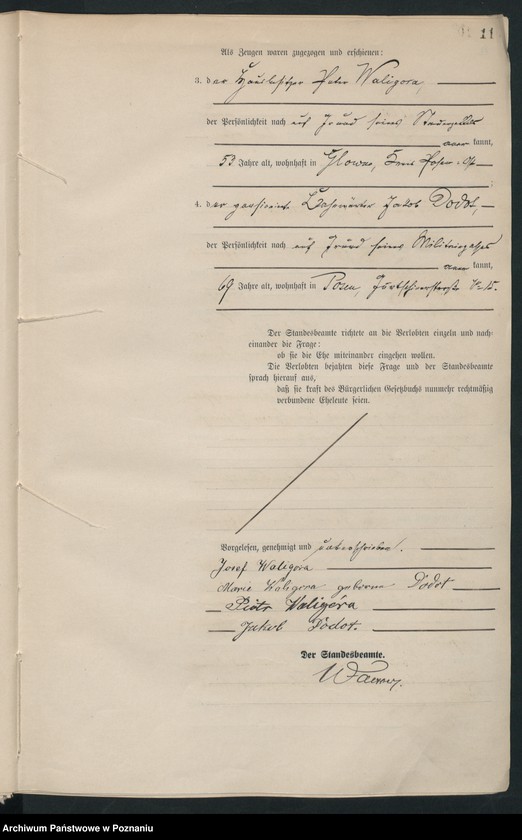 11
Als Zeugen waren zugezogen und erschienen:
3. der Hausbesitzer Peter Waligora,
der Persönlichkeit nach auf Grund seines
kannt,
53 Jahre alt, wohnhaft in Glowno, Posen-Ost
;
4. der pensionierte Bahnwärter Jakob Dodot,
der Persönlichkeit nach auf Grund seines Militairpasses
kannt,
69 Jahre alt, wohnhaft in Posen, 15.
Der Standesbeamte richtete an die Verlobten einzeln und nach-
einander die Frage:
ob sie die Ehe miteinander eingehen wollen.
Die Verlobten bejahten diese Frage und der Standesbeamte
sprach hierauf aus,
daß sie kraft des Bürgerlichen Gesetzbuchs nunmehr rechtmäßig
verbundene Eheleute seien.
Vorgelesen, genehmigt und unterschrieben.
Josef Waligora
Marie Waligora geborene Dodot
Piotr Waligóra
Jakub Dodot.
Der Standesbeamte.
Archiwum Państwowe w Poznaniu